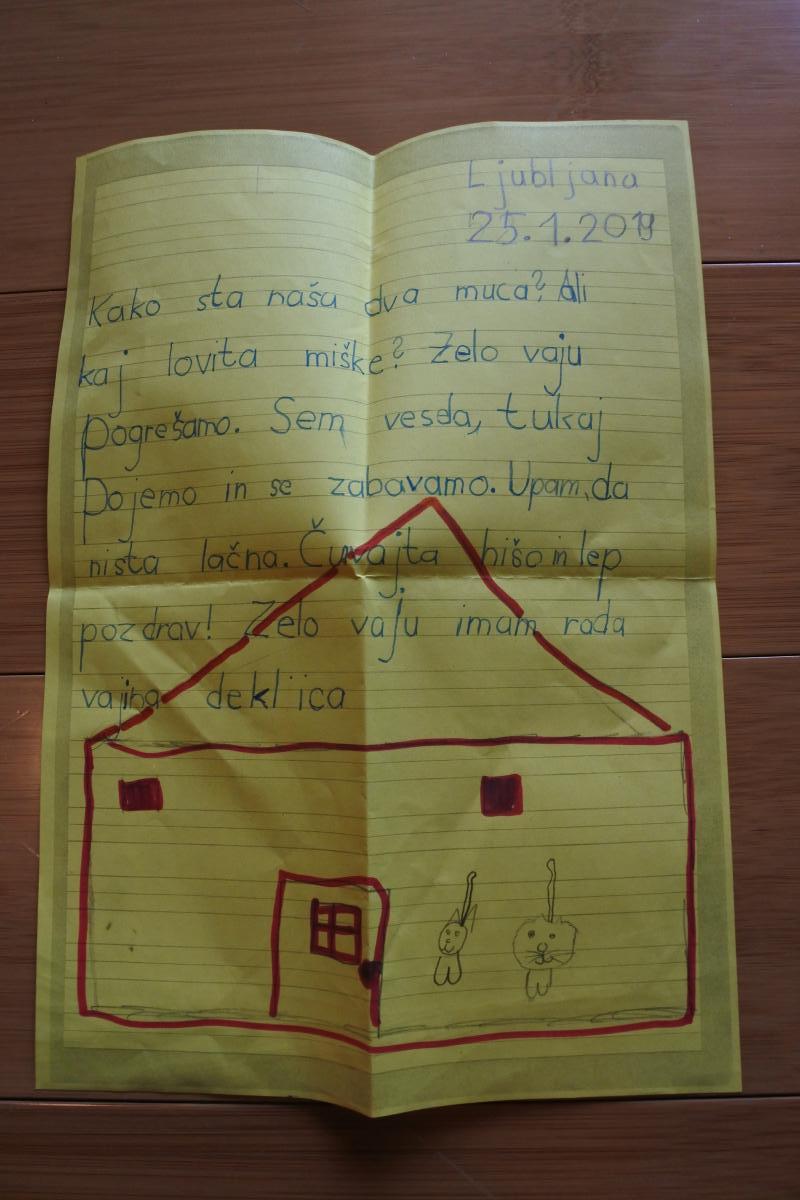 Ljubljana
25.1.2011
Kako sta naša dva muca? Ali
kaj lovita miške? Zelo vaju
pogrešamo. Sem vesela, tukaj
pojemo in se zabavamo. Upam, da
nista lačna. Čuvajta hišo in lep
pozdrav! Zelo vaju imam rada
vajina deklica